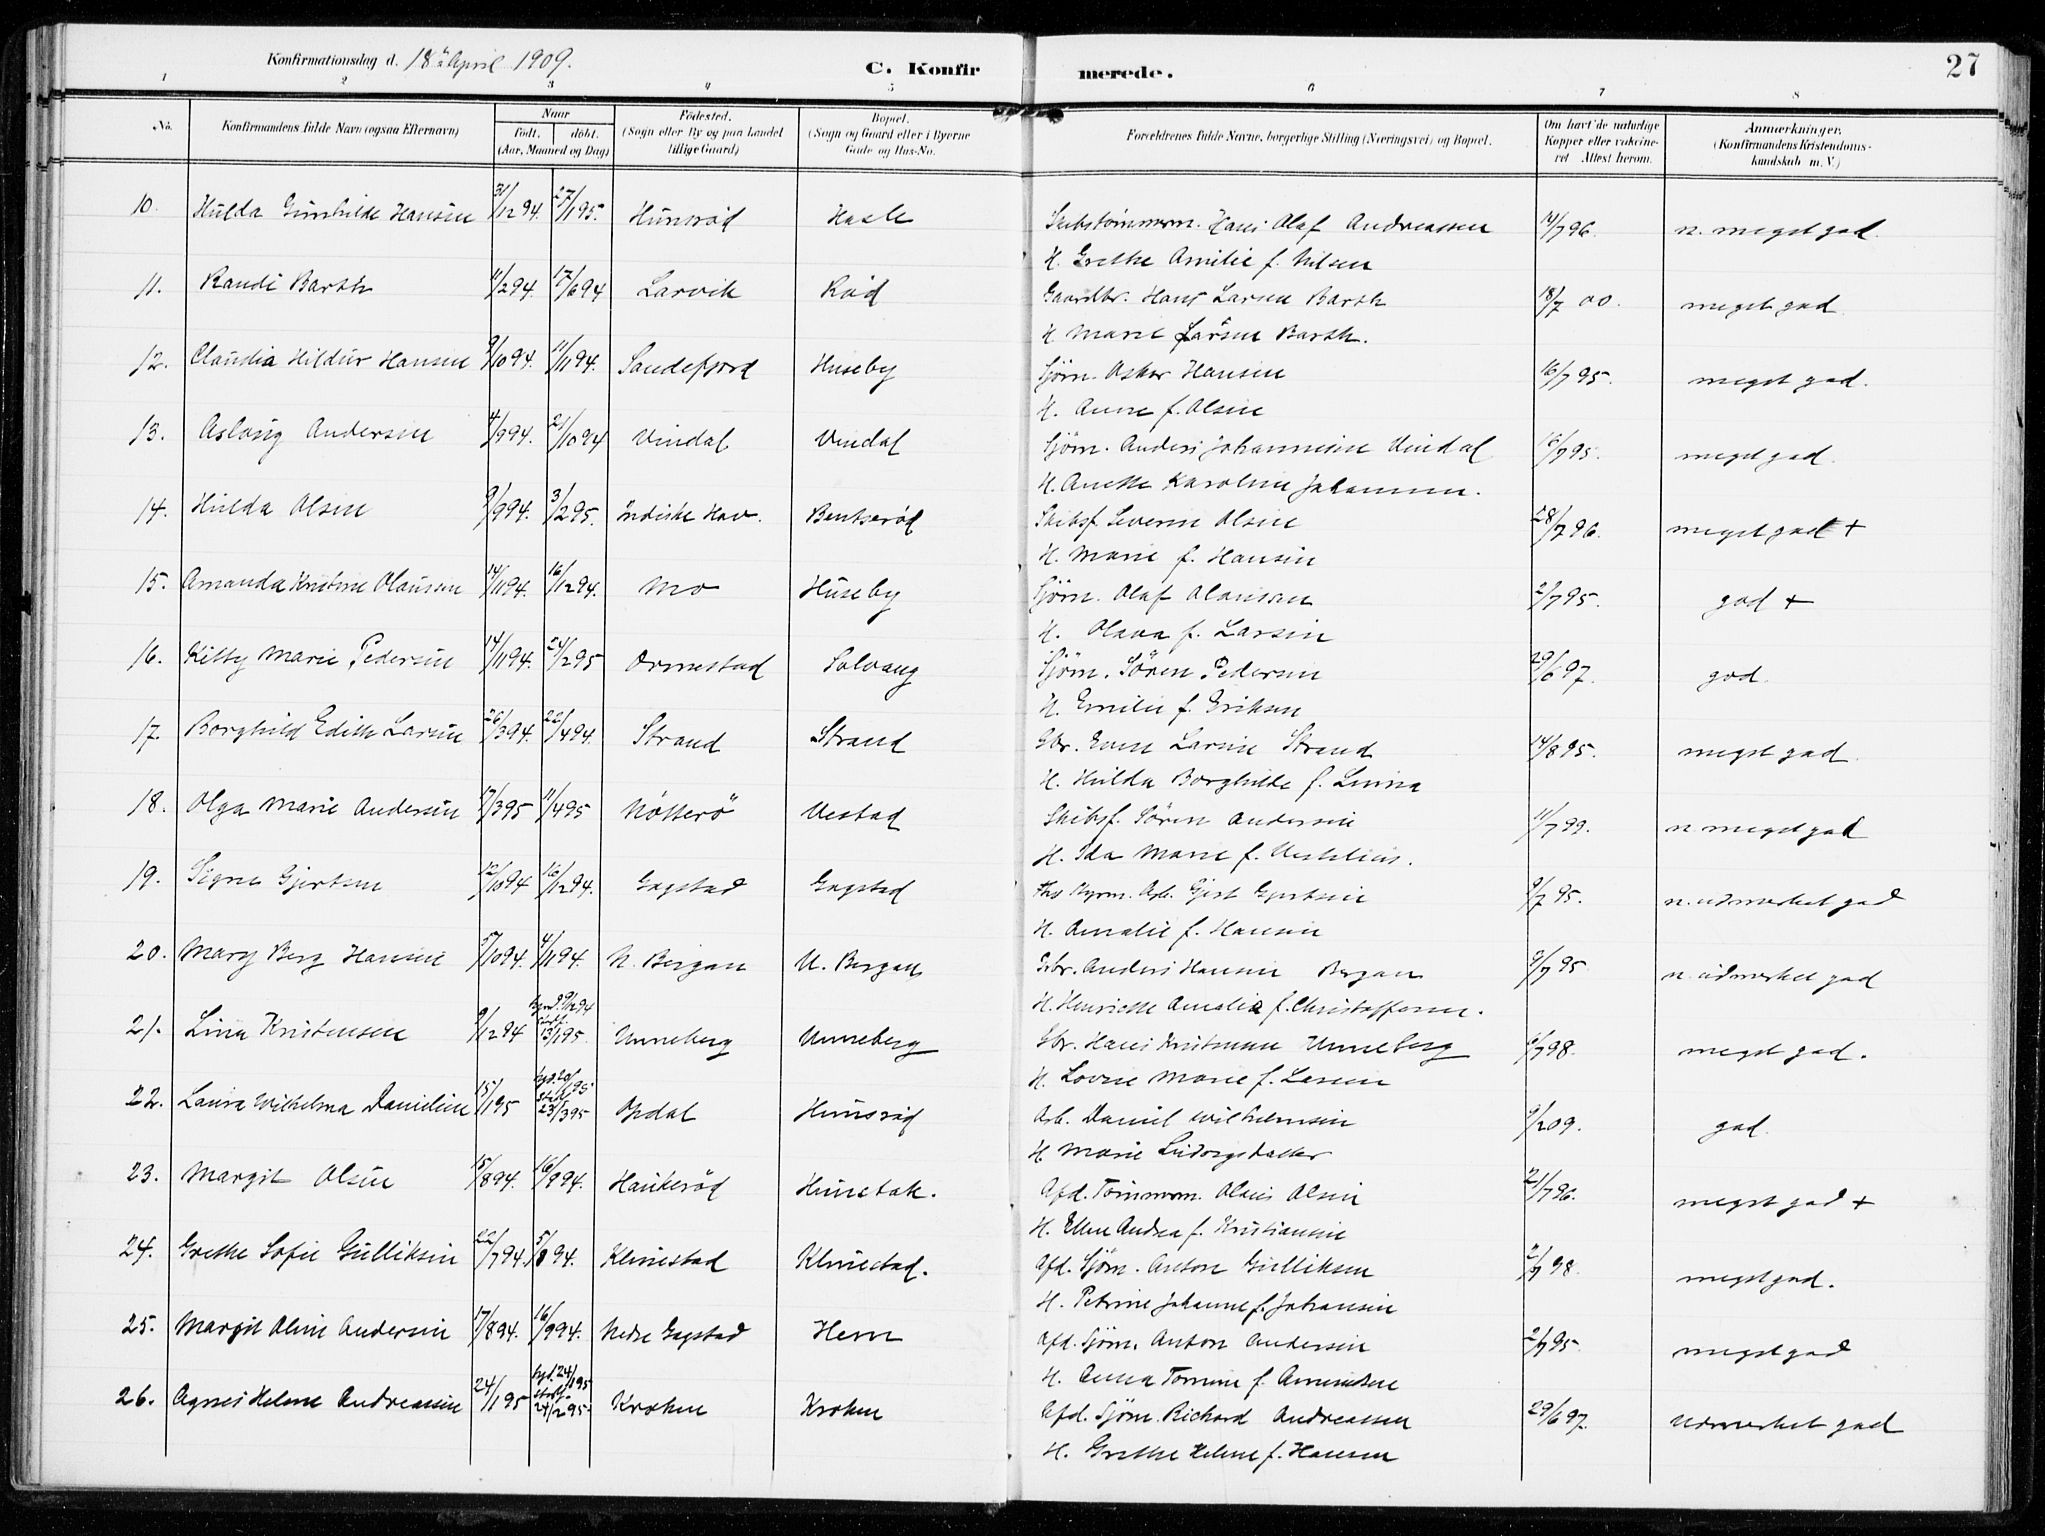 Konfirmationsdag d. 18de April 1909.
C. Konfirmerede.
27
1 2 3 4 5 6 7 8
No. Konfirmandens fulde Navn (ogsaa Efternavn) Naar født. døbt. (Aar, Maaned og Dag) Fødested. (Sogn eller By og paa Landet tillige Gaard) Bopæl. (Sogn og Gaard eller i Byerne Gade og Hus-No. Forældrenes fulde Navne, borgerlige Stilling (Næringsvei) og Bopæl. Om havt de naturlige Kopper eller vakcineret Attest herom. Anmærkninger. (Konfirmandens Kristendomskundskab m. V.)
10. Hulda Gunhilde Hansen 31/12 94. 27/1 95. Hunsrød Hasle Skibstømmerm. Hans Olaf Andreassen 14/7 96. n. meget god.
H. Grethe Amilie f. Nilsen
11. Randi Barth 11/2 94. 17/6 94 Larvik Rød Gaardbr. Hans Larsen Barth 18/7 00. meget god
H Marie Larsen Barth.
12. Claudia Hildur Hansen 9/10 94. 11/11 94. Sandefjord Huseby Sjøm. Oskar Hansen 16/7 95. meget god.
H. Anne f. Olsen
13. Aslaug Andersen 4/9 94. 21/10 94 Vindal Vindal Sjøm. Anders Johannesen Vindal 16/7 95. meget god.
H. Anette Karoline Johannsen.
14. Hulda Olsen 9/9 94. 3/2 95. Indiske Hav. Bentserød Skibsf. Severin Olsen 28/7 96. meget god +
H. Marie f. Hansen
15. Amanda Kristine Olaussen 14/11 94. 16/12 94. Mo Huseby Sjøm. Olaf Olaussen 2/7 95. god +
H. Olava f. Larsen
16. Kitty Marie Pedersen 14/11 94. 24/2 95 Ormestad Solvang Sjøm. Søren Pedersen 29/6 97. god.
H. Emilie f. Eriksen
17. Borghild Edith Larsen 26/3 94. 22/4 94. Strand Strand Gbr. Even Larsen Strand 14/8 95. meget god.
H. Hulda Borghilde f.
18. Olga Marie Andersen 17/3 95 11/4 95 Nøtterø Vestad Skibsf. Søren Andersen 11/7 99. n. meget god
H. Ida Marie f.
19. Signe Gjertsen 12/10 94 16/12 94. Gogstad Gogstad Gjert Gjertsen 9/7 95. n. udmerket god
H. Amalie f. Hansen
20. Mary Berg Hansen 5/10 94. 4/11 94. N. Bergan N. Bergan Gbr. Anders Hansen Bergan 9/7 95 n. udmerket god
H. Henriette Amalia f. Christoffersen.
21. Lina Kristensen 9/12 94 13/1 95. Unneberg Unneberg Gbr. Hans Kristensen Unneberg /7 98. meget god.
H. Lovise Marie f. Larsen
22. Laura Wilhelma Danielsen 15/1 95 23/3 95 Opdal Hunsrød Arb. Daniel Wilhelmsen 9/2 09. god.
H Marie Ludvigsdatter
23. Margit Olsen 15/8 94. 16/9 94. Haukerød Hunetok. Afd. Tømmerm. Olaus Olsen 21/7 96. meget god +
H. Ellen Andrea f. Kristiansen
24. Grethe Sofie Gulliksen 22/7 94. 5/8 94. Klinestad Klinestad. Afd. Sjøm. Anton Gulliksen 2/7 98. meget god.
H. Petrine Johanne f. Johansen
25. Margit Oline Andersen 17/8 94. 16/9 94. Nedre Gogstad Hem Afd. Sjøm. Anton Andersen 2/7 95. meget god
H. Anna Tomine f. Amundsen
26. Agnes Helene Andreassen 24/1 95 24/2 95. Kroken Kroken Afd. Sjøm. Richard Andreassen 29/6 97. Udmerket god
H. Grethe Helene f. Hansen